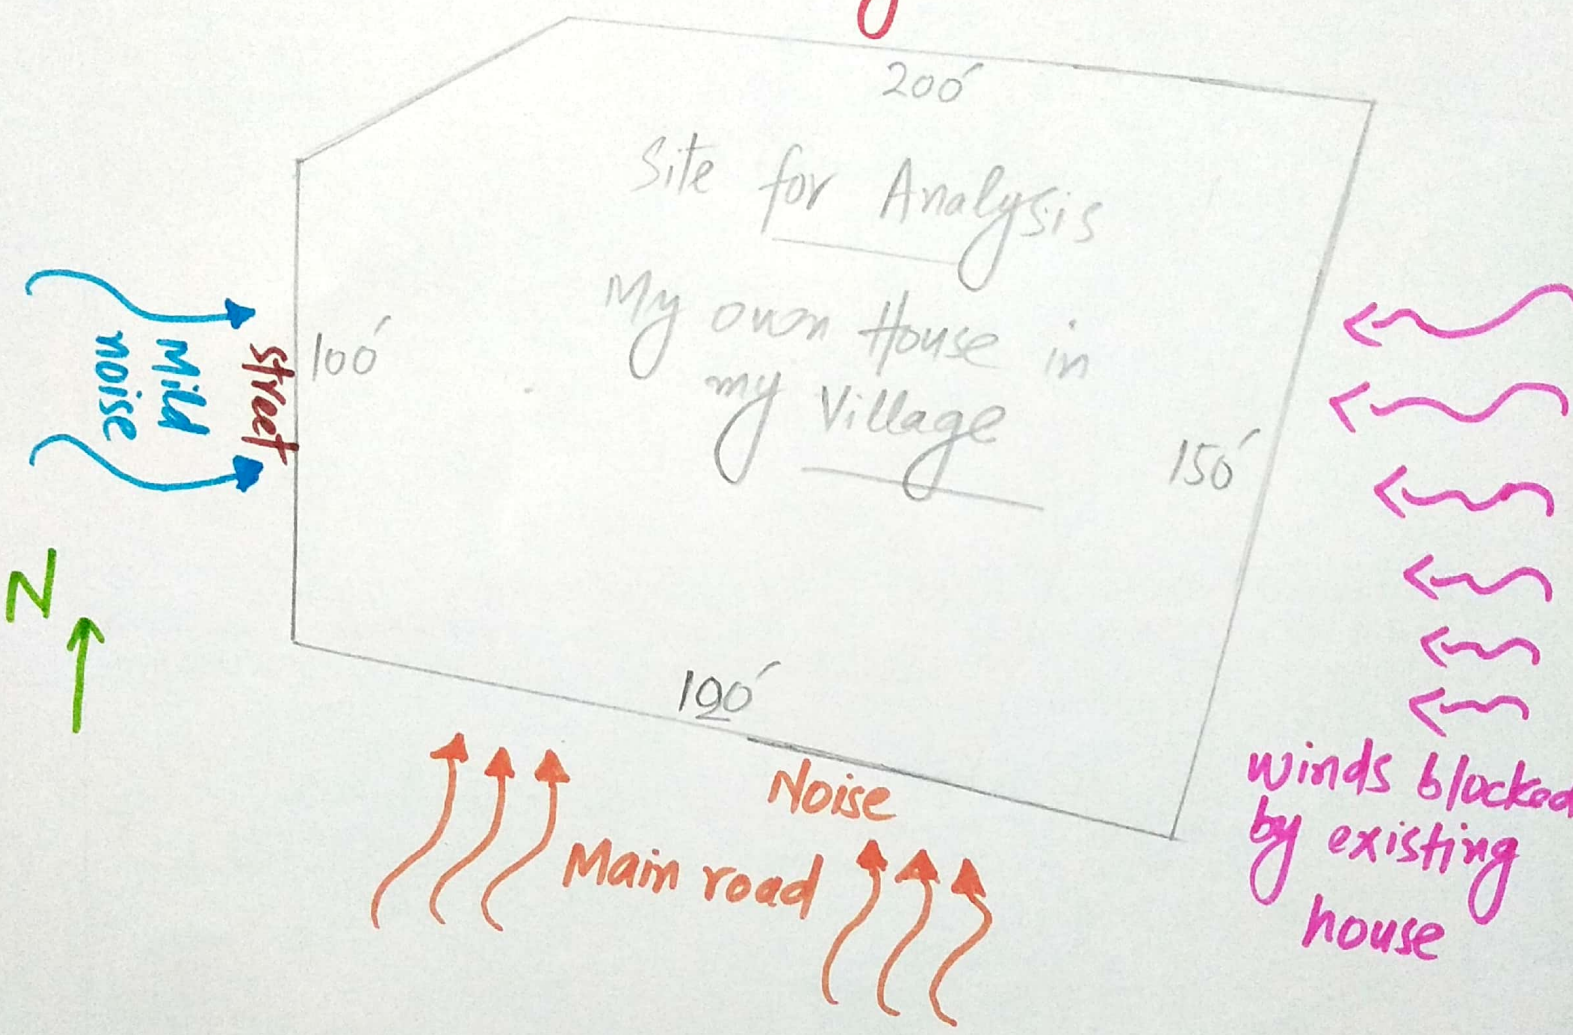 200'
Site for Analysis
My own House in
my Village
100'
150'
street
Mild
noise
N
Noise
Main road
winds blocked
by existing
house